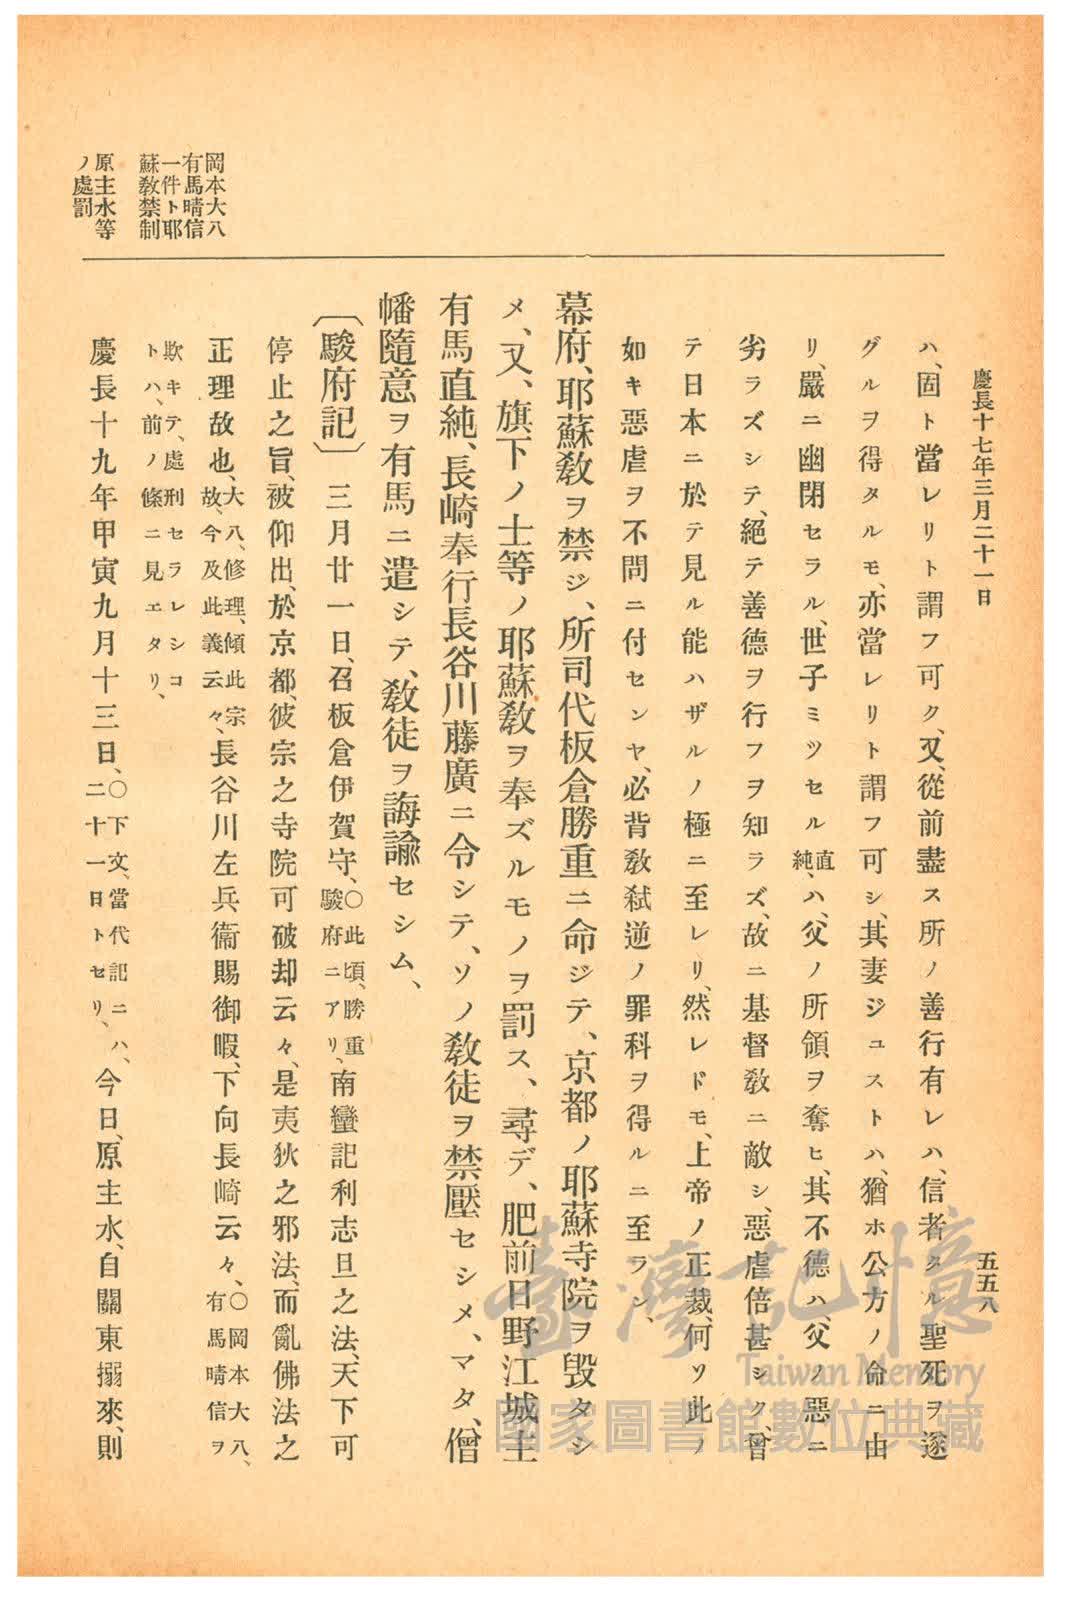 慶長十七年三月二十一日
五五八
ハ、固ト當レリト謂フ可ク、又、從前盡ス所ノ善行有レハ、信者タル聖死ヲ遂
グルヲ得タルモ、亦當レリト謂フ可シ、其妻ジュストハ、猶ホ公方ノ命ニ由
リ、嚴ニ幽閉セラル、世子ミツセル直純、ハ、父ノ所領ヲ奪ヒ、其不德ハ、父ノ惡ニ
劣ラズシテ、絕テ善德ヲ行フヲ知ラズ、故ニ基督敎ニ敵シ、惡虐倍甚シク、曾
テ日本ニ於テ見ル能ハザルノ極ニ至レリ、然レドモ、上帝ノ正裁、何ソ此ノ
如キ惡虐ヲ不問ニ付センヤ、必背敎弑逆ノ罪科ヲ得ルニ至ラン、
幕府、耶蘇敎ヲ禁ジ、所司代板倉勝重ニ命ジテ、京都ノ耶蘇寺院ヲ毀タシ
メ、又、旗下ノ士等ノ耶蘇敎ヲ奉ズルモノヲ罰ス、尋デ、肥前日野江城主
有馬直純、長崎奉行長谷川藤廣ニ令シテ、ソノ敎徒ヲ禁壓セシメ、マタ、僧
幡隨意ヲ有馬ニ遣シテ、敎徒ヲ誨諭セシム、
〔駿府記〕 三月廿一日、召板倉伊賀守、〇此頃、勝重駿府ニアリ、南蠻記利志旦之法、天下可
停止之旨、被仰出、於京都、彼宗之寺院可破却云々、是夷狄之邪法、而亂佛法之
正理故也、大八、修理、傾此宗故、今及此義云々、長谷川左兵衞賜御暇、下向長崎云々、〇岡本大八、有馬晴信ヲ
欺キテ、處刑セラレシコ
トハ、前ノ條ニ見エタリ、
慶長十九年甲寅九月十三日、〇下文、當代記ニハ、二十一日トセリ、今日、原主水、自關東搦來、則
岡本大八
有馬晴信
一件ト耶
蘇敎禁制
原主水等
ノ處罰
臺灣記憶
Taiwan Memory
國家圖書館數位典藏